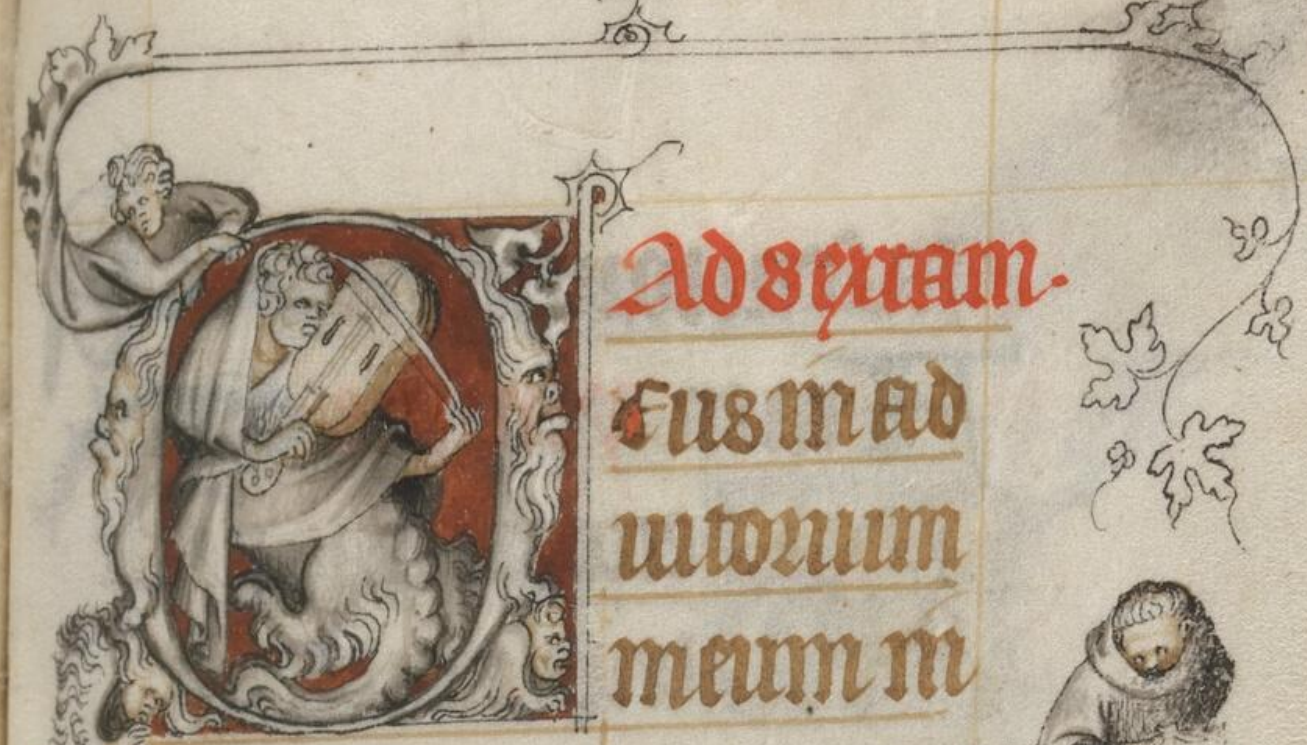 Ad sextam.
Deus in ad
iutorium
meum in